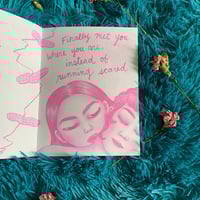 Finally met you
where you are,
instead of
running scared